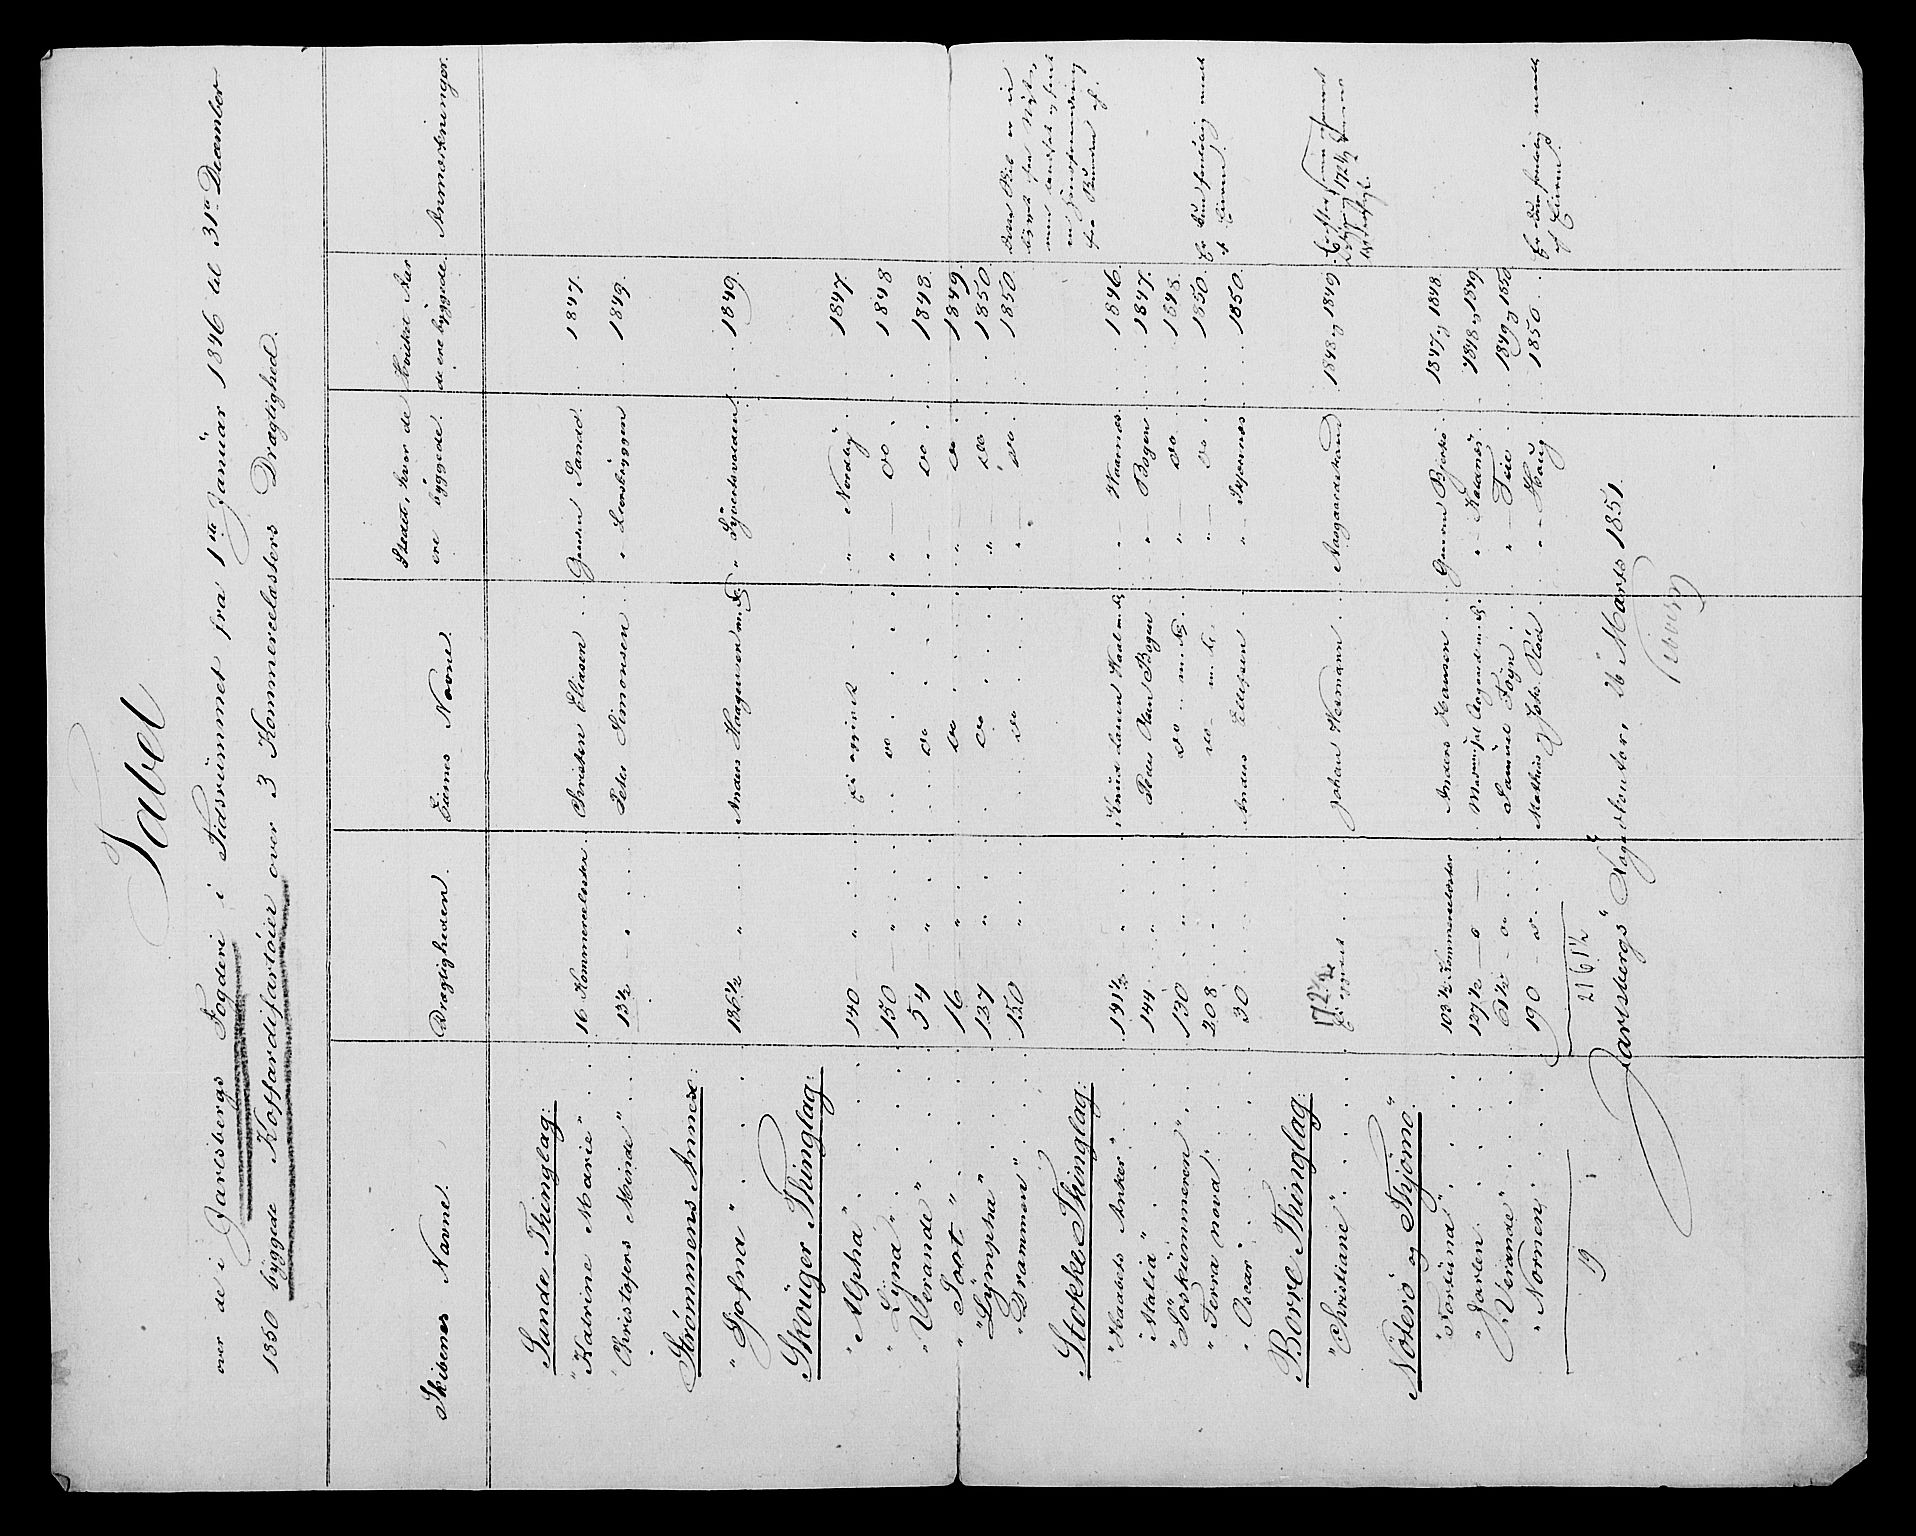 Tabel
over de i Jarlsbergs Fogderi i Tidsrummet fra 1ste Januar 1846 til 31te December
1850 byggede Koffardifartøier over 3 Kommercelæsters Drægtighed.
Skibenes Navne. Drægtigheden Eiernes Navne Stedet, hvor de ere byggede. Hvilke Aar de ere byggede. Anmærkninger.
Sande Thinglag:
"Katrine Marie" 16 Kommercelæster Christen Eliasen Gaarden Sande 1847.
"Christofers Minde" 13½ " Peter Simonsen " Leersbryggen 1849.
Strømmens Annex:
"Gjofna" 136½ " Anders Haagensen m. Fl. " Syvertsvolden 1849.
Skouger Thinglag:
"Alpha" 140 " Ei opgivet " Nordby 1847.
"Lyna" 150 " do " do 1848
"Verande" 54 " do " do 1848.
"Soot" 16 " do " do 1849.
"Lÿmpha" 137 " do " do 1850
"Drammen" 150 " do " do 1850
Dette Skib er
Stokke Thinglag:
"Haabets Anker" 141½ " Knud Larsen m. Fl. " Vaarnæs 1846.
"Atalia" 144 " Peder Olsen Bogen " Bogen 1847.
"Søskummeren" 130 " do m. Fl. " do 1848.
"Terra nova" 208 do m. Fl. " do 1850.
"Oscar" 30 Anders Ellefsen " Skjærsnæs 1850.
Er kun foreløbig maalt
af Eieren.
Borre Thinglag:
"Christiane" 172½ Ei opgivet Johan Hermann Aasgaardstrand 1848 og 1849.
Nøterø og Thjømø:
"Fortuna" 102½ Kommercelæster Anders Hansen Gaarden Bjerkø 1847 og 1848
"Jarlen" 127½ " Aagaard m. Fl. " Kaldnæs 1848 og 1849.
"Verande" 61½ do Samuel Foyn " Teie 1849 og 1850
"Nornen" 190 do Mathias og Johs. Röd " Haug 1850.
Er kun foreløbig maalt
af Eieren.
19 2161½
Jarlsbergs Fogedcontoir, 26 Marts 1851.